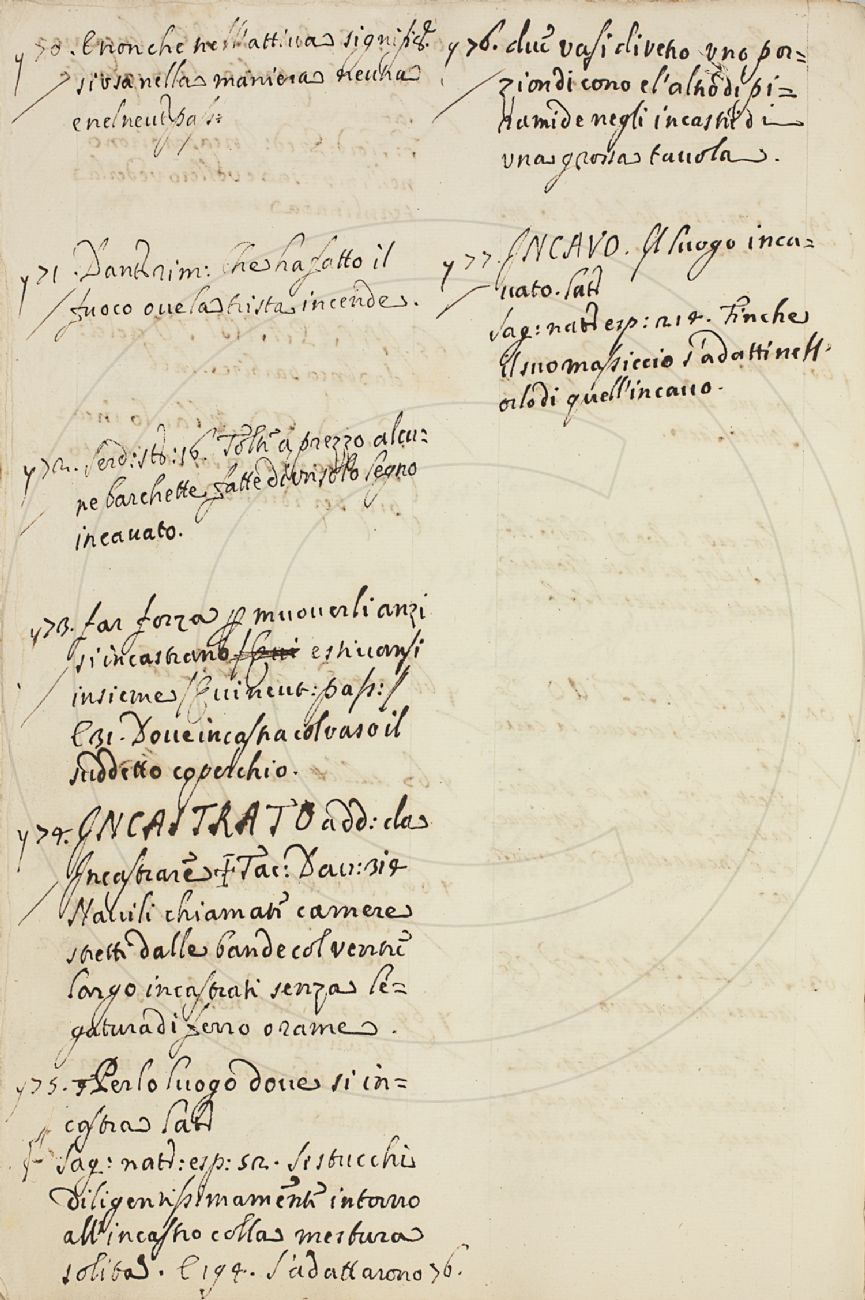 y70. E non che nell'attiva signific:
si usa nella maniera neutra
e nel neut: pass:
y71. Dant: rim: che ha fatto il
fuoco ove la trista incende.
y72. Serd: sto: 16. Tolti a prezzo alcu=
ne barchette fatte di un solo legno
incavato.
y73. far forza p muoverli anzi
si incastrano e stivansi
insieme / Qui neut: pass: /
E 31. Dove incastra col vaso il
suddetto coperchio.
y74. INCASTRATO add: da
Incastrare Tac: Dav: 314
Navili chiamati camere
stretti dalle bande col ventre
largo incastrati senza le=
gatura di ferro o rame.
y75. Per lo luogo dove si in=
castra Lat:
Sag: nat: esp: 52. Se stucchi
diligentissimamente intorno
all'incastro colla mestura
solita. E 194. S'adattarono 76.
y76. due vasi di vetro uno por=
zion di cono e l'altro di pi=
ramide negli incastri di
una grossa tavola.
y77. INCAVO. Il luogo inca=
vato. Lat:
Sag: nat: esp: 214. Finche
il suo massiccio s'adatti nell'
orlo di quell'incavo.